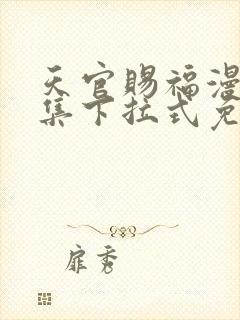 天官赐福漫
集下拉式免
扉秀